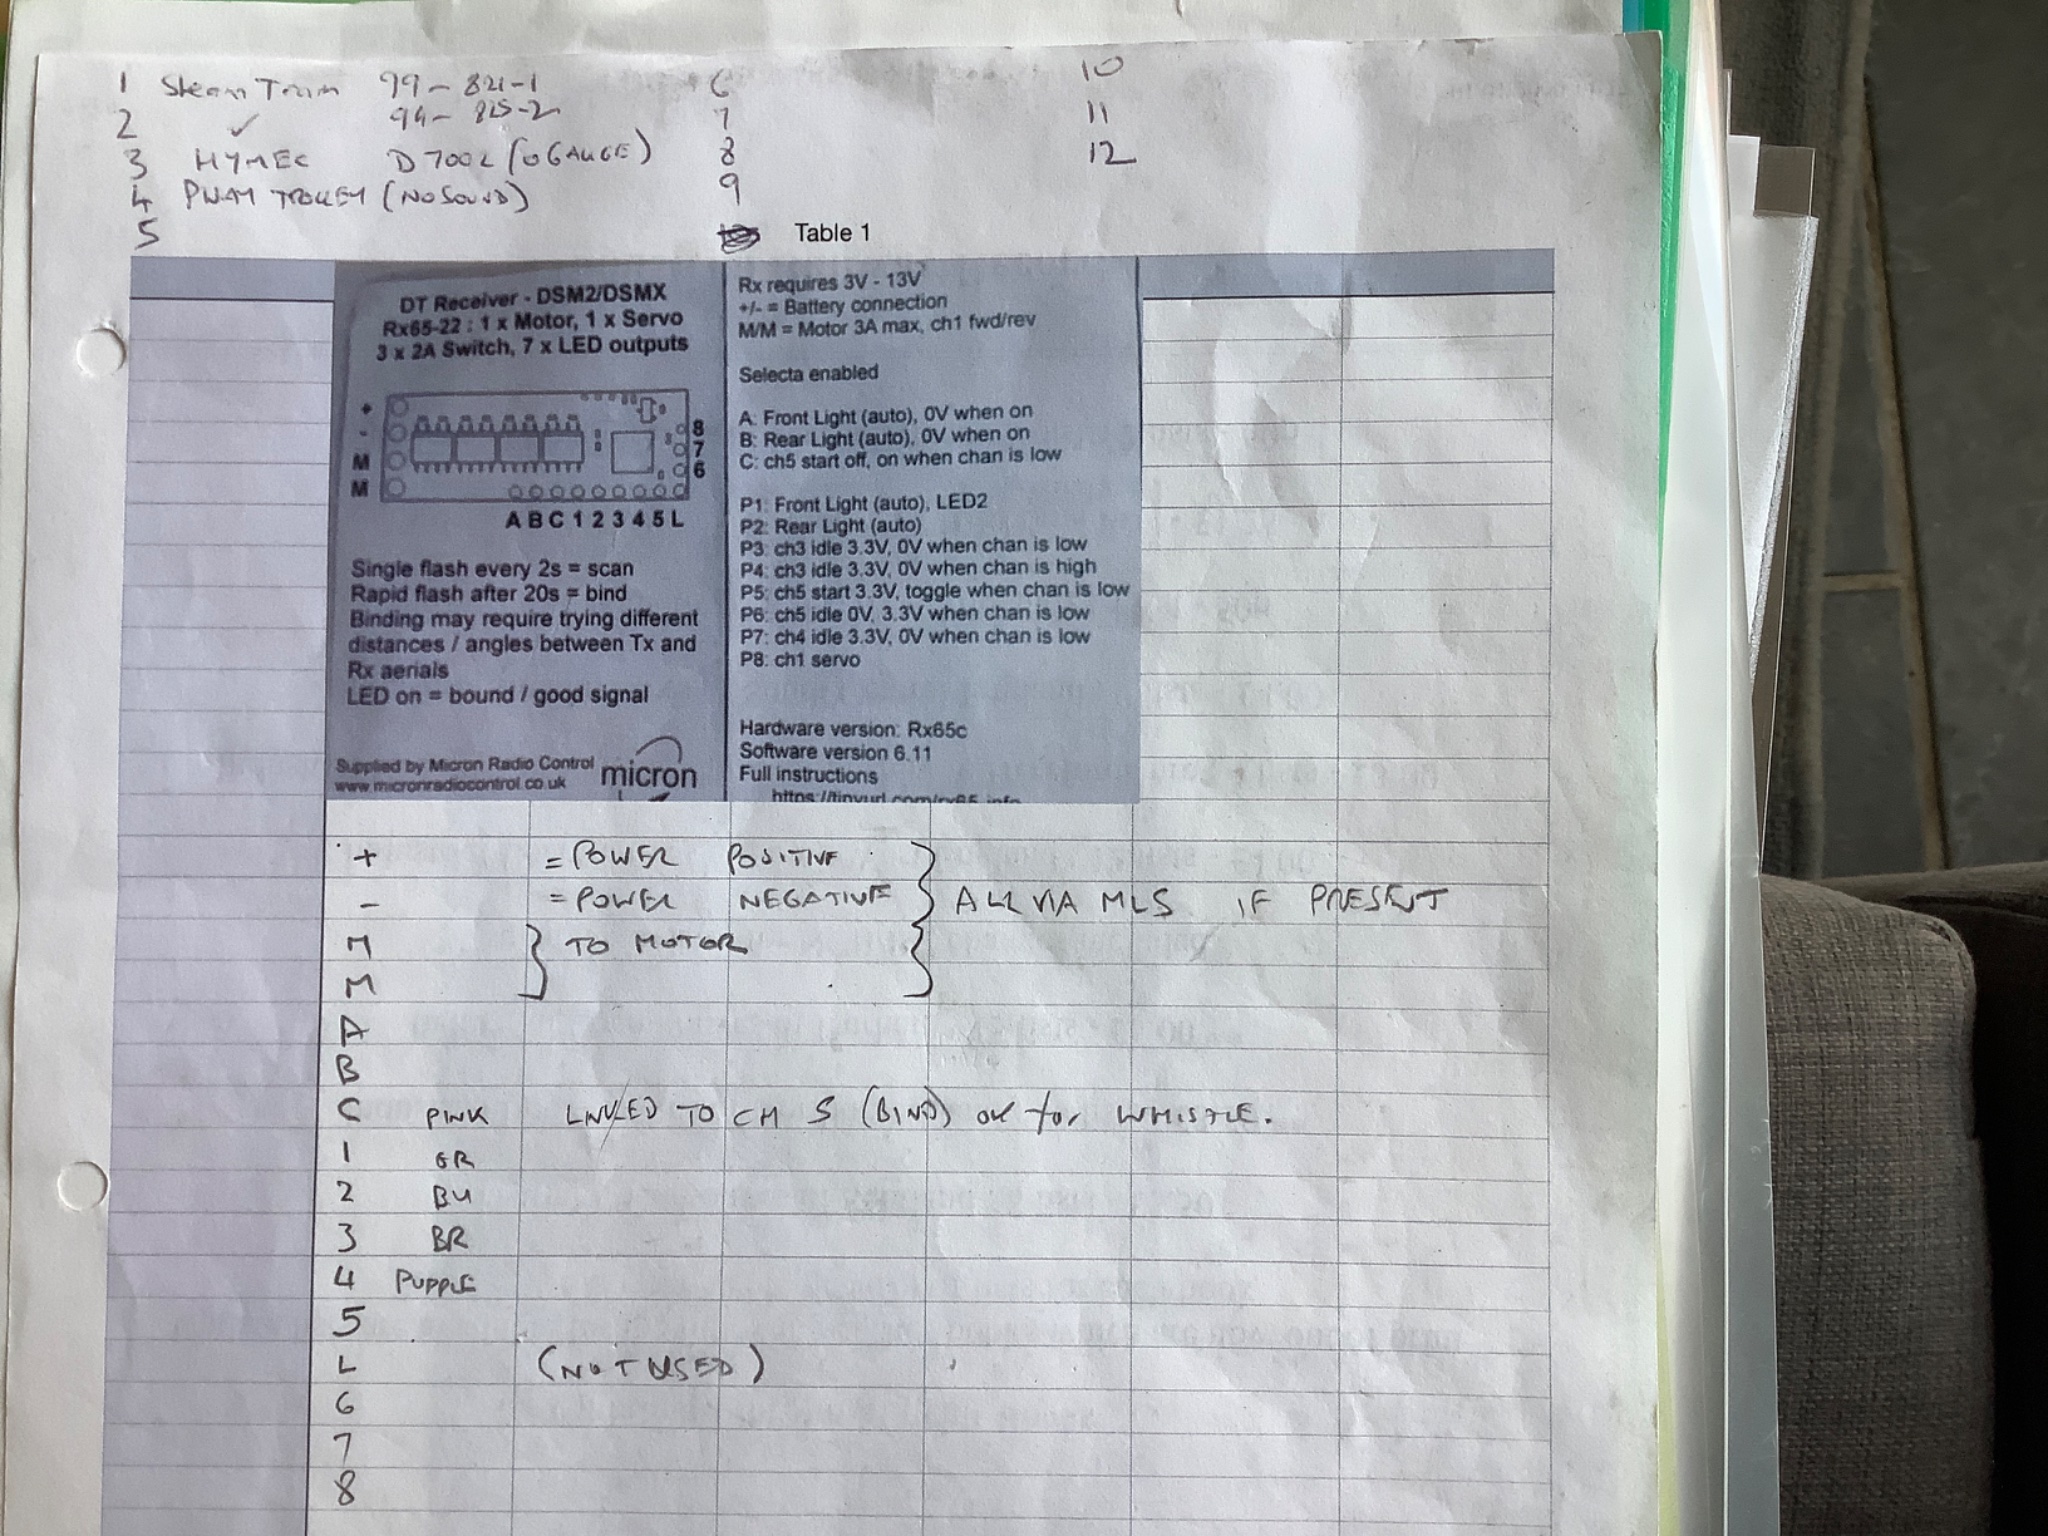 1 Steam Tram 99-821-1
2 ✓ 94-825-2
3 HYMEC D7002 (O GAUGE)
4 PWAY TROLLEY (NO SOUND)
5
6
7
8
9
10
11
12
Table 1
DT Receiver - DSM2/DSMX
Rx65-22 : 1 x Motor, 1 x Servo
3 x 2A Switch, 7 x LED outputs
+
-
M
M
8
7
6
A B C 1 2 3 4 5 L
Single flash every 2s = scan
Rapid flash after 20s = bind
Binding may require trying different
distances / angles between Tx and
Rx aerials
LED on = bound / good signal
Supplied by Micron Radio Control
www.micronradiocontrol.co.uk
micron
Rx requires 3V - 13V
+/- = Battery connection
M/M = Motor 3A max, ch1 fwd/rev
Selecta enabled
A: Front Light (auto), 0V when on
B: Rear Light (auto), 0V when on
C: ch5 start off, on when chan is low
P1: Front Light (auto), LED2
P2: Rear Light (auto)
P3: ch3 idle 3.3V, 0V when chan is low
P4: ch3 idle 3.3V, 0V when chan is high
P5: ch5 start 3.3V, toggle when chan is low
P6: ch5 idle 0V, 3.3V when chan is low
P7: ch4 idle 3.3V, 0V when chan is low
P8: ch1 servo
Hardware version: Rx65c
Software version 6.11
Full instructions
https://tinyurl.com/rx65-info
+ = POWER POSITIVE
- = POWER NEGATIVE ALL VIA MLS IF PRESENT
M TO MOTOR
M
A
B
C PINK LINKED TO CH 5 (BIND) OK for WHISTLE.
1 GR
2 BU
3 BR
4 PUPPLE
5
L (NOT USED)
6
7
8